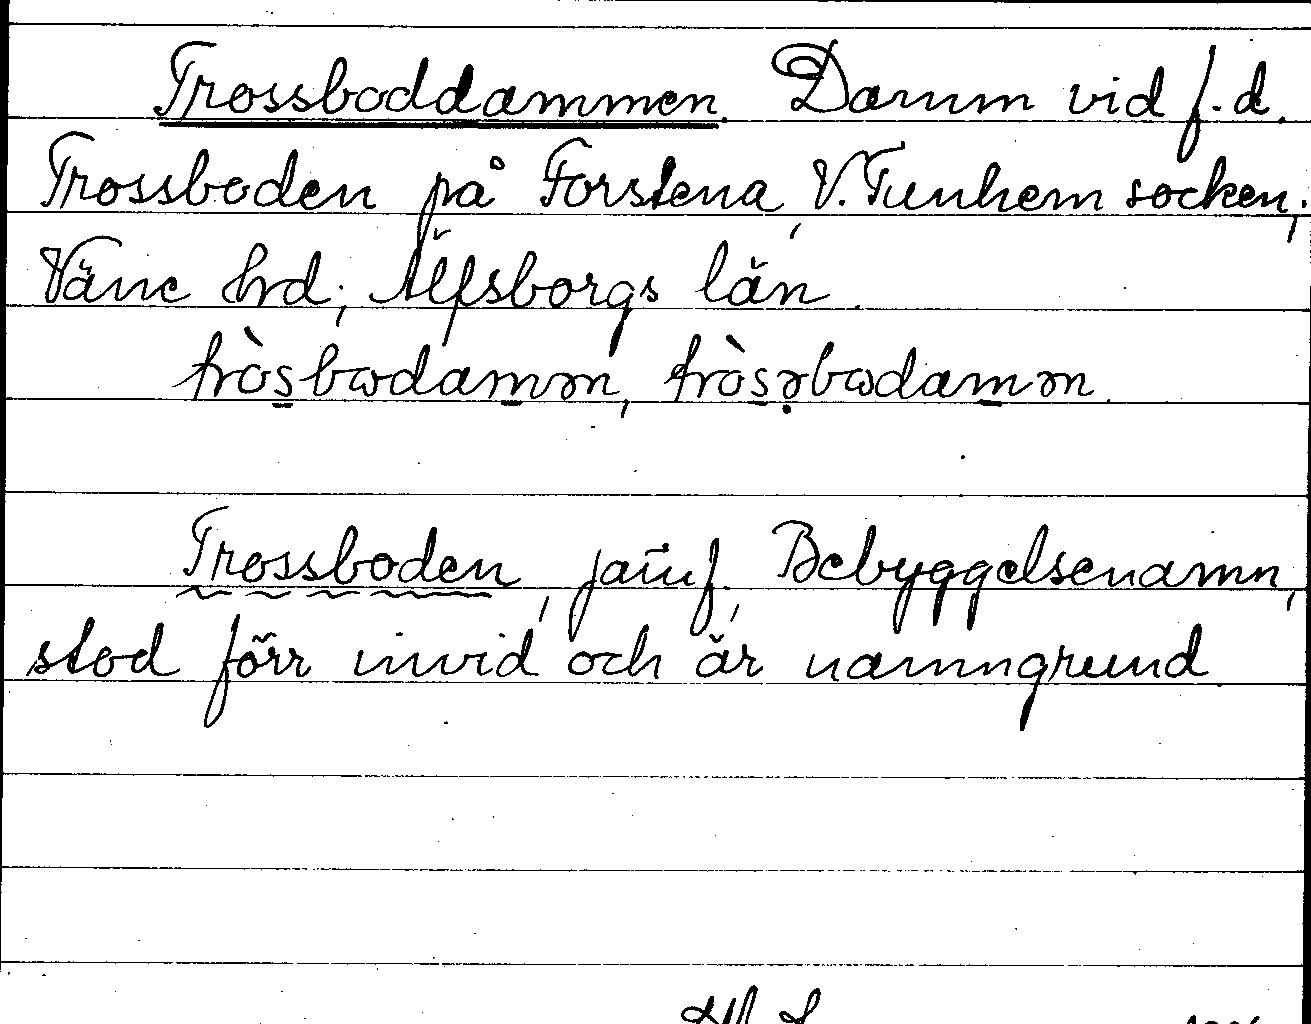 Trossboddammen. Damm vid f.d.
Trossboden på Forstena, V. Tunhem socken;
Väne hrd; Älfsborgs län.
tròsbωdamən, tròsəbωdamən.
Trossboden, jämf. Bebyggelsenamn,
stod förr invid och är namngrund